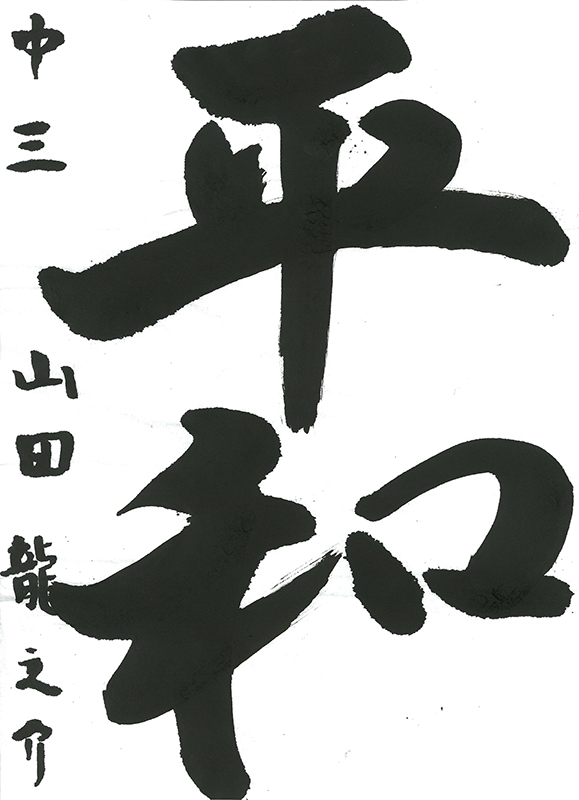 平和
中三 山田龍之介